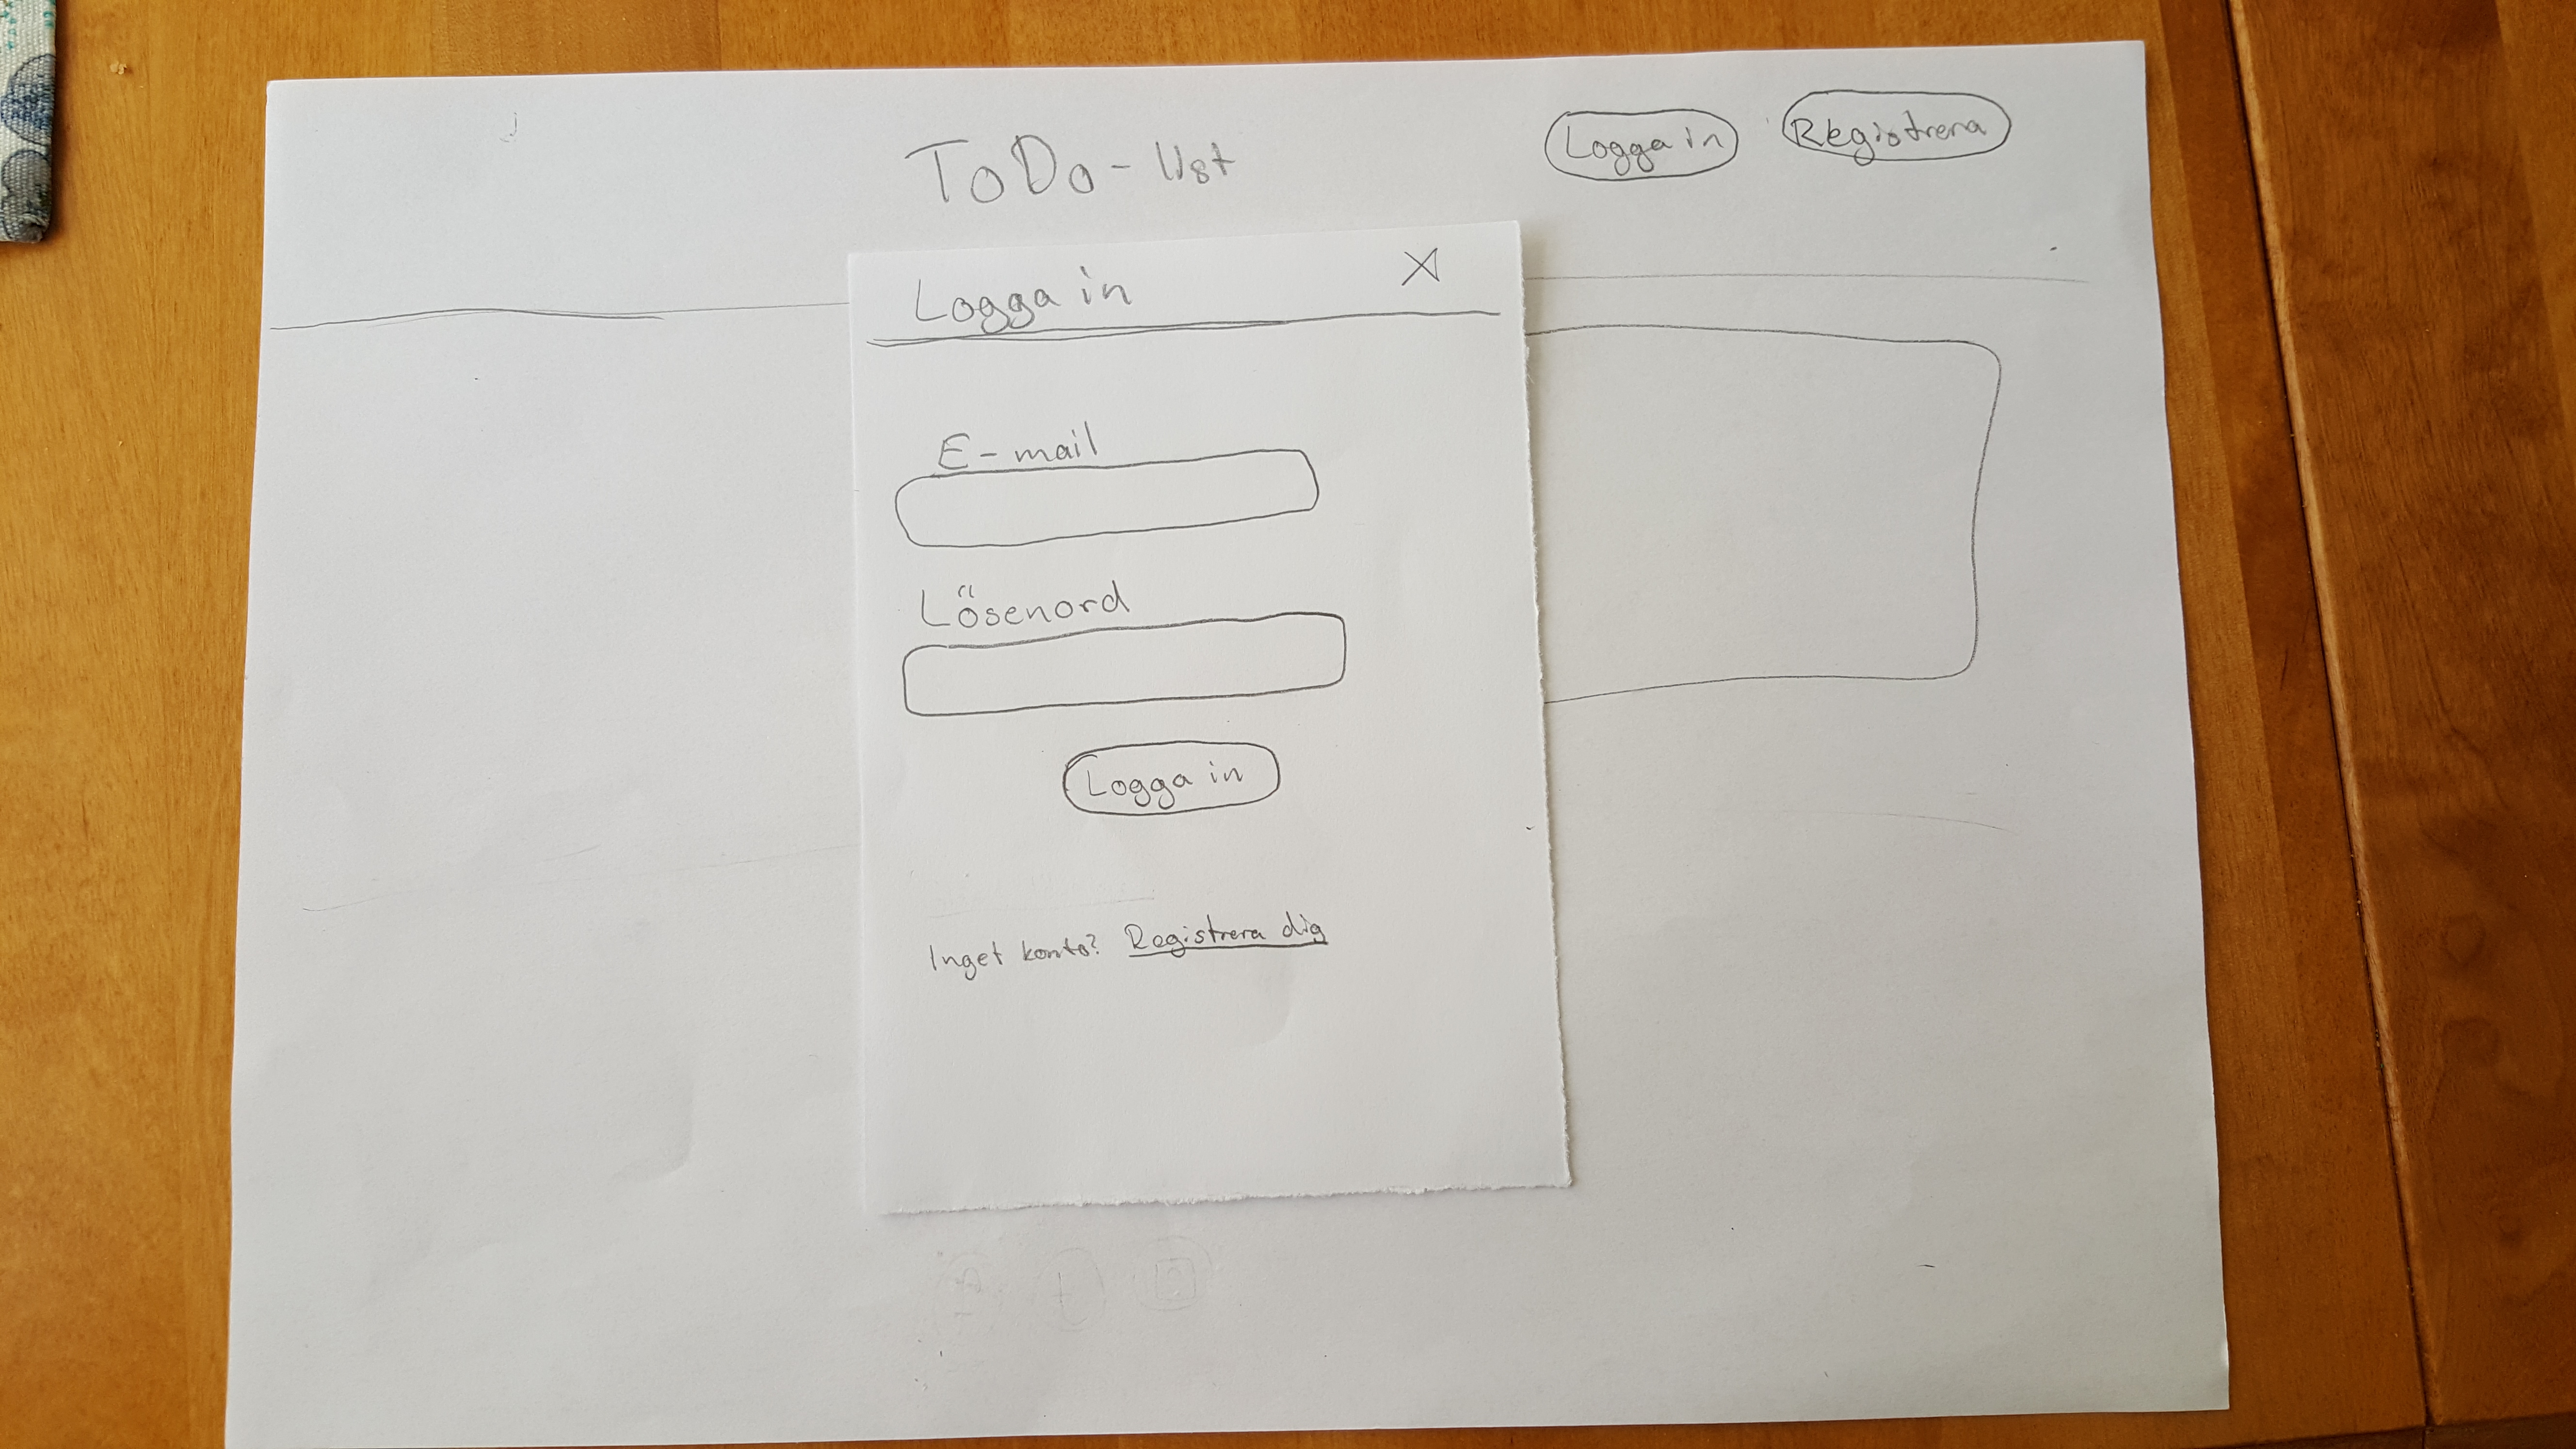 ToDo-list
Logga in
Registrera
Logga in X
E-mail
Lösenord
Logga in
Inget konto? Registrera dig